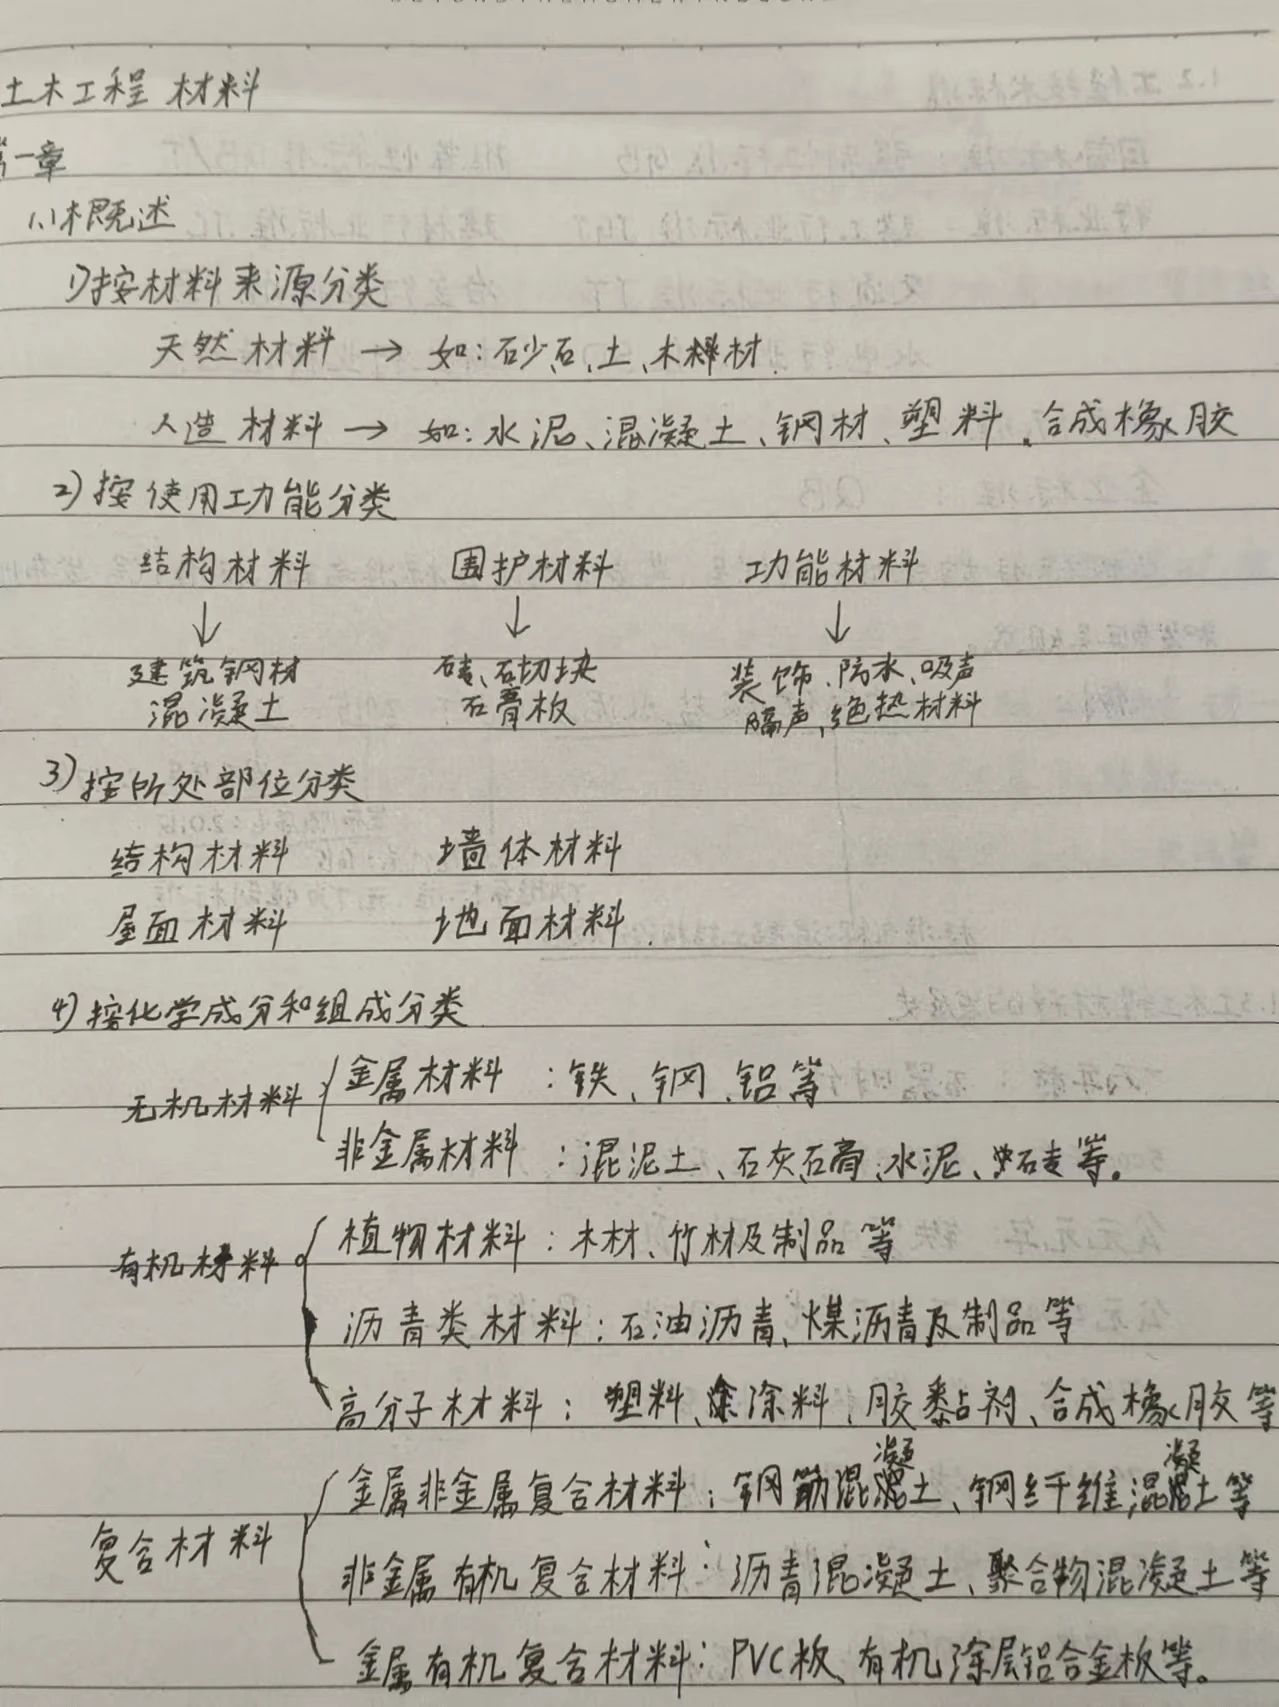 土木工程材料
第一章
1.1概述
1)按材料来源分类
天然材料→如:砂石、土、木材
人造材料→如:水泥、混凝土、钢材、塑料、合成橡胶
2)按使用功能分类
结构材料 围护材料 功能材料
↓ ↓ ↓
建筑钢材 砖、砌块 装饰、防水、吸声
混凝土 石膏板 隔声、绝热材料
3)按所处部位分类
结构材料 墙体材料
屋面材料 地面材料
4)按化学成分和组成分类
金属材料:铁、钢、铝等
无机材料
非金属材料:混泥土、石灰石膏、水泥、砖等。
植物材料:木材、竹材及制品等
有机材料
沥青类材料:石油沥青、煤沥青及制品等
高分子材料:塑料、涂料、胶黏剂、合成橡胶等
金属非金属复合材料:钢筋混凝土、钢纤维混凝土等
复合材料
非金属有机复合材料:沥青混凝土、聚合物混凝土等
金属有机复合材料:PVC板、有机涂层铝合金板等。